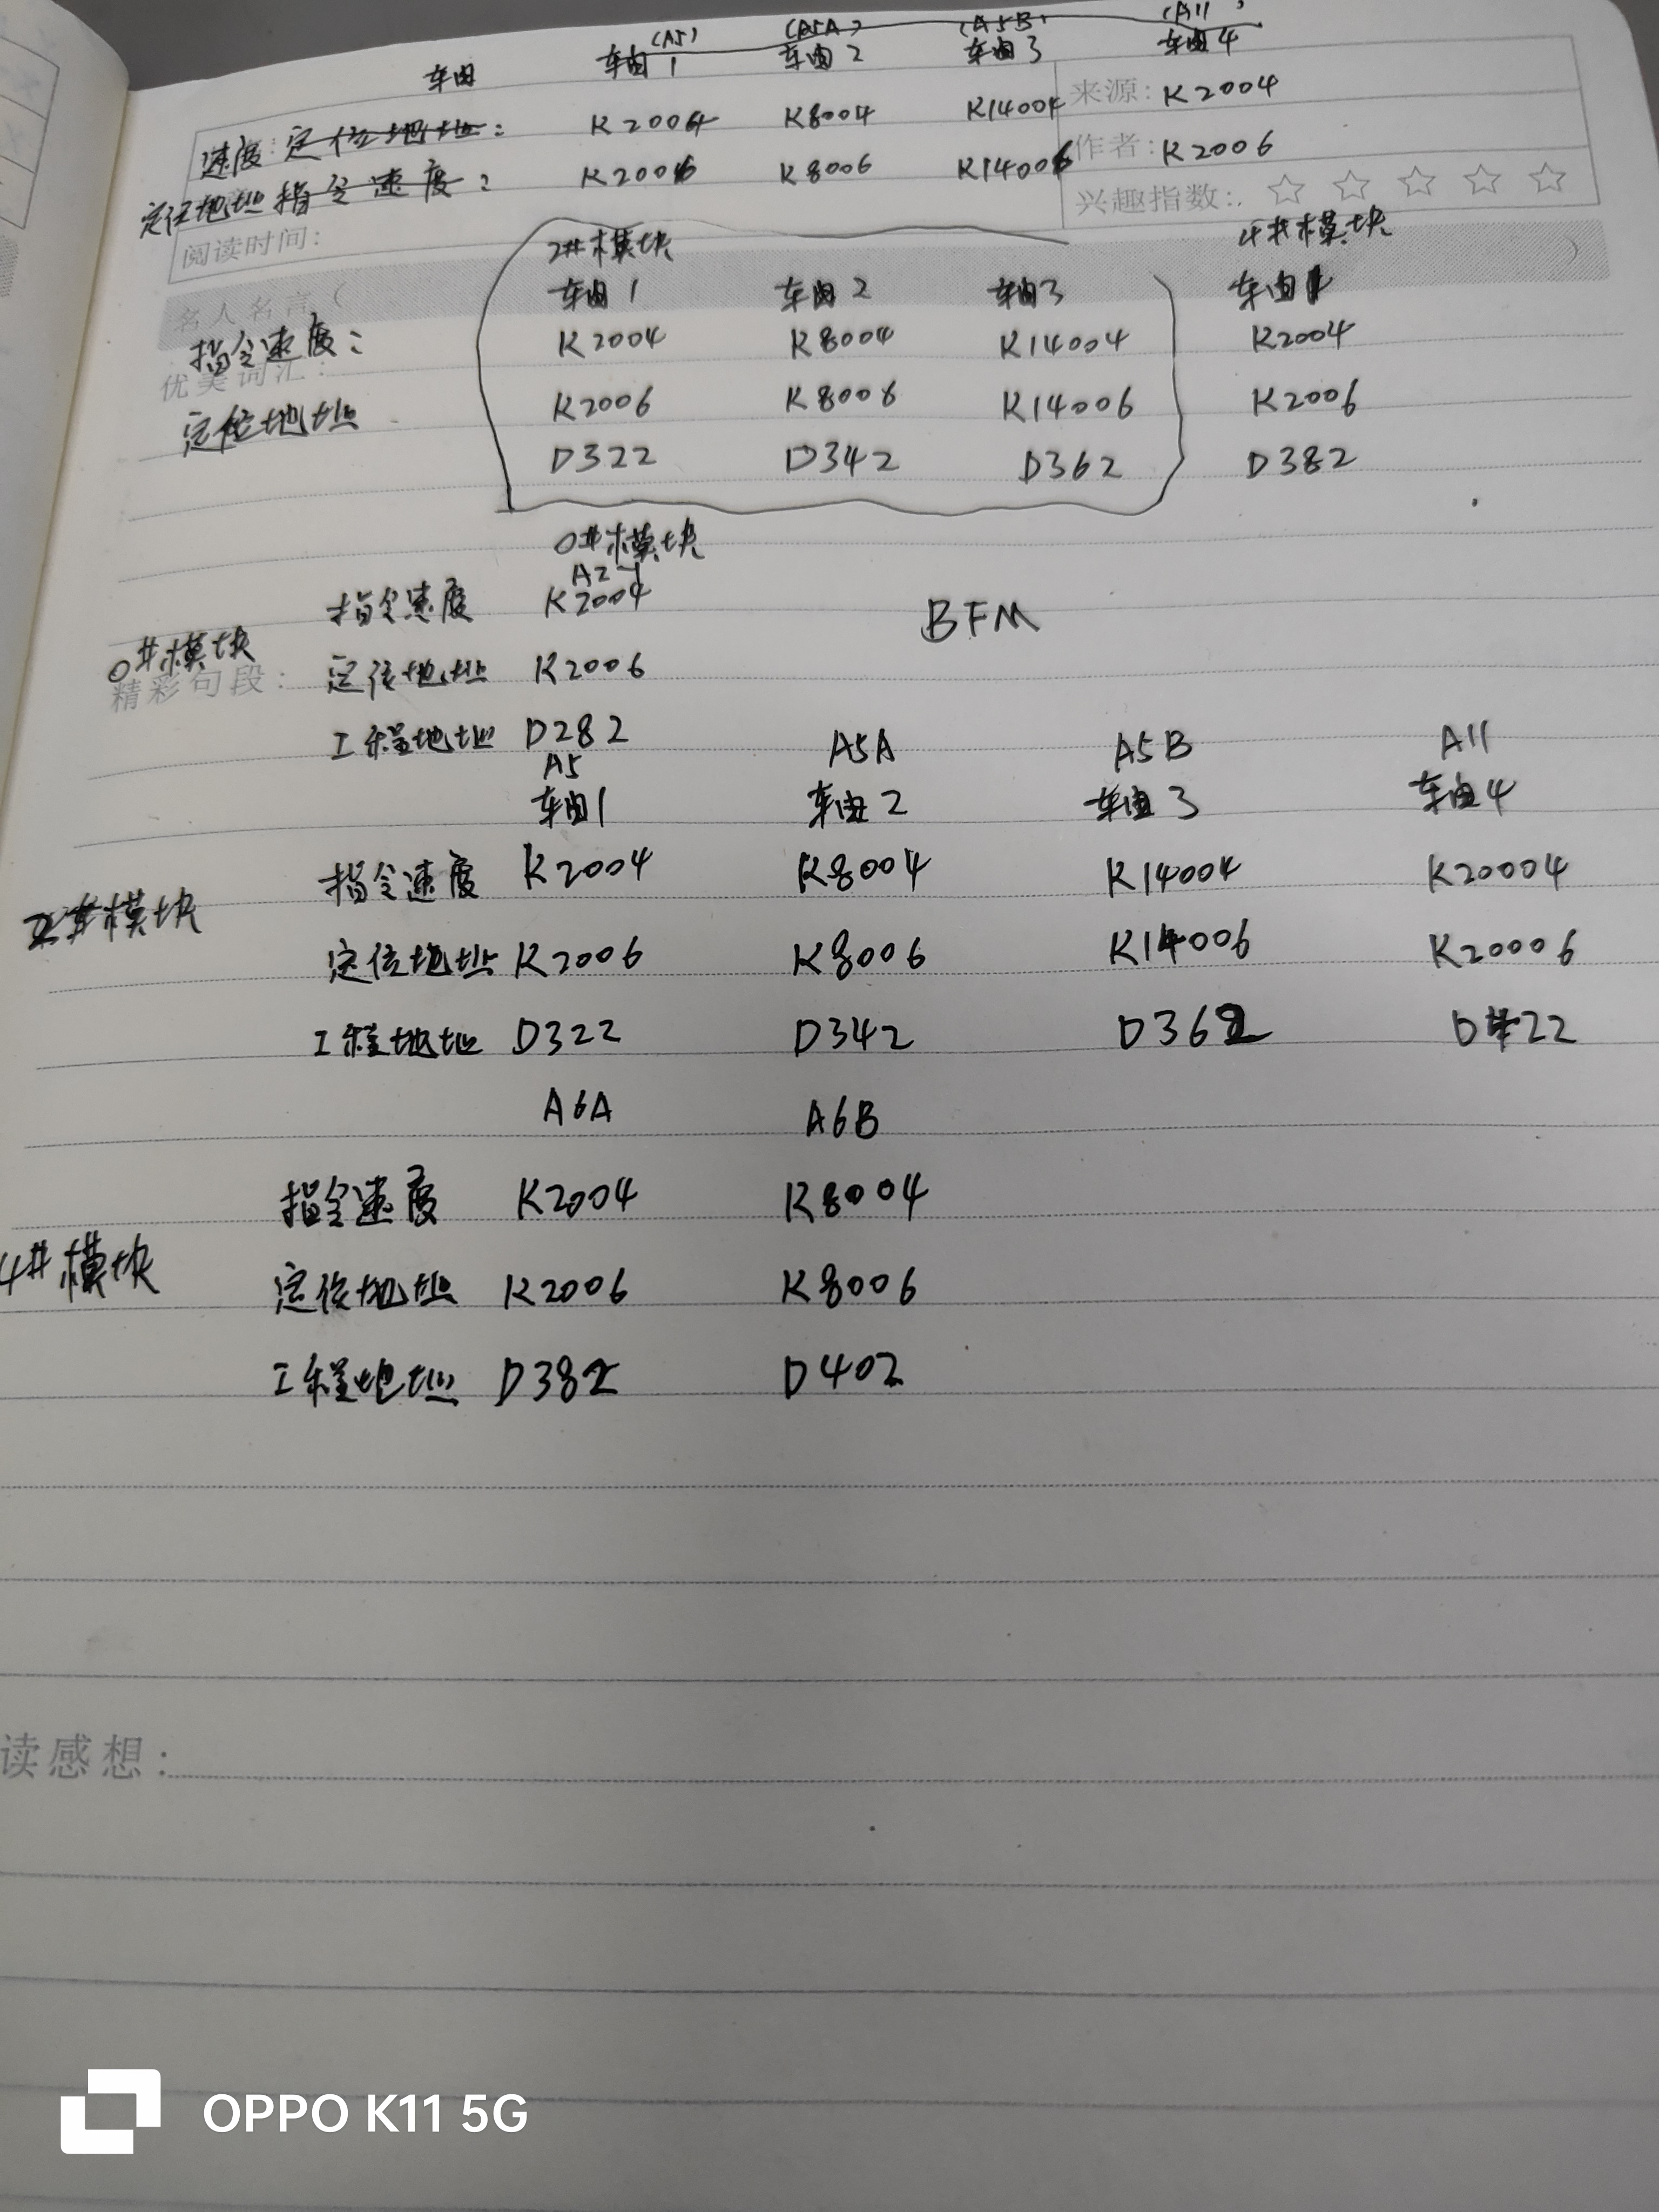 (A5) (A5A) (A5B) (A11)
车由 车由1 车由2 车由3 车由4
速度 定位地址: K2004 K8004 K14004 来源: K2004
定位地址 指令速度: K2006 K8006 K14006 作者: K2006
兴趣指数:
阅读时间:
2#模块 4#模块
名人名言( 车由1 车由2 车由3 车由1 )
指令速度: K2004 K8004 K14004 K2004
优美词汇:
定位地址 K2006 K8006 K14006 K2006
D322 D342 D362 D382
0#模块
A2-1
指令速度 K2004 BFM
0#模块
精彩句段: 定位地址 K2006
工程地址 D282
A5 A5A A5B A11
车由1 车由2 车由3 车由4
指令速度 K2004 K8004 K14004 K20004
2#模块
定位地址 K2006 K8006 K14006 K20006
工程地址 D322 D342 D362 D422
A6A A6B
指令速度 K2004 K8004
4#模块
定位地址 K2006 K8006
工程地址 D382 D402
读感想:
OPPO K11 5G